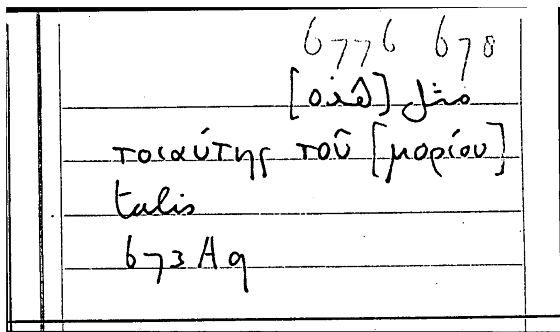 6776 678
مثل
τοιαύτης τοῦ [μορίου]
talis
673 A 9